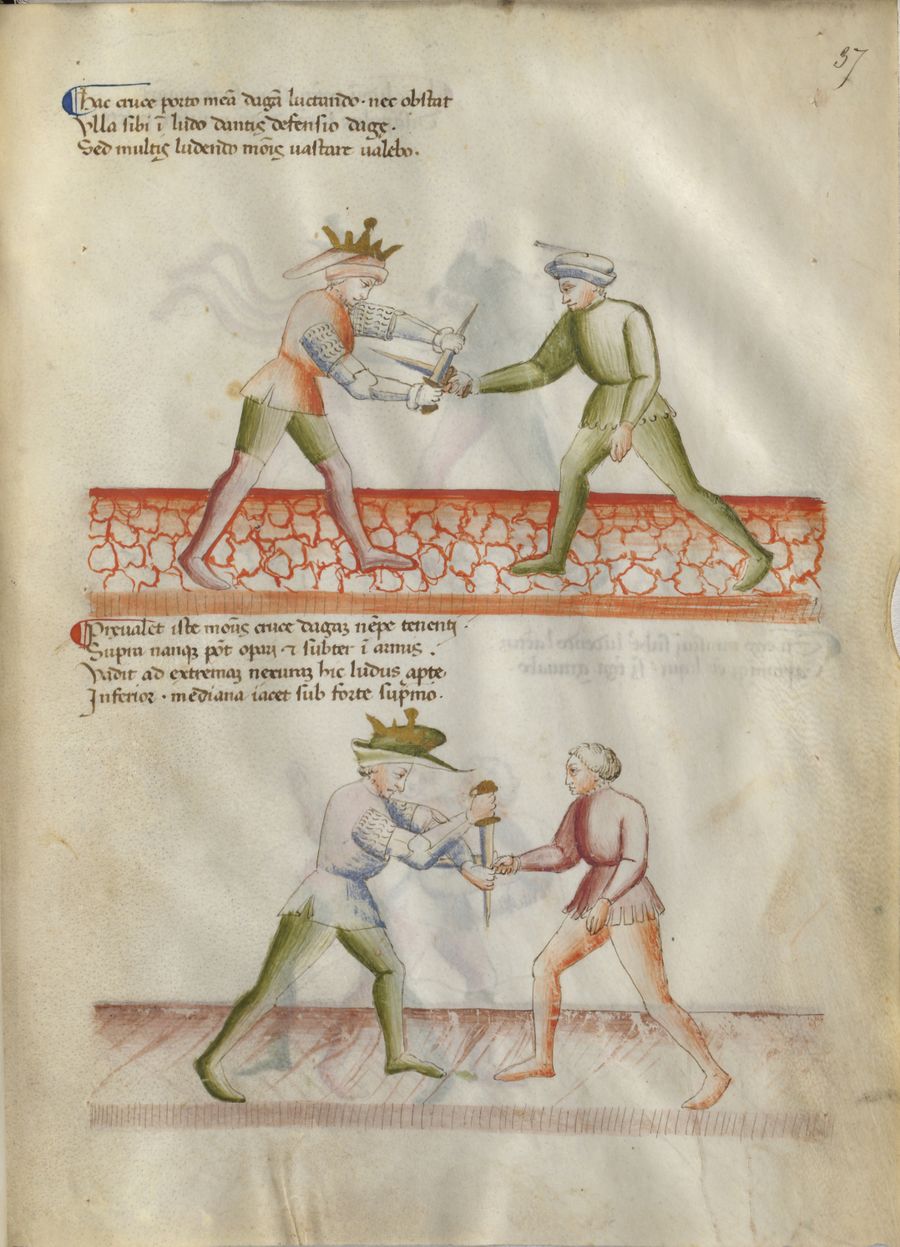 37
Hac cruce porto meā dagā luctando · nec obstat
Vlla sibi ī ludo dantis defensio dage ·
Sed multis ludendo mōis uastare ualebo ·
Preualet iste moūs cruce dagaʒ nēpe tenenti ·
Supra nanqʒ pōt opari ⁊ subter ī armis ·
Vadit ad extremaʒ nexuraʒ hic ludus apte,
Inferior · mēdiana iacet sub forte sup̄mo ·